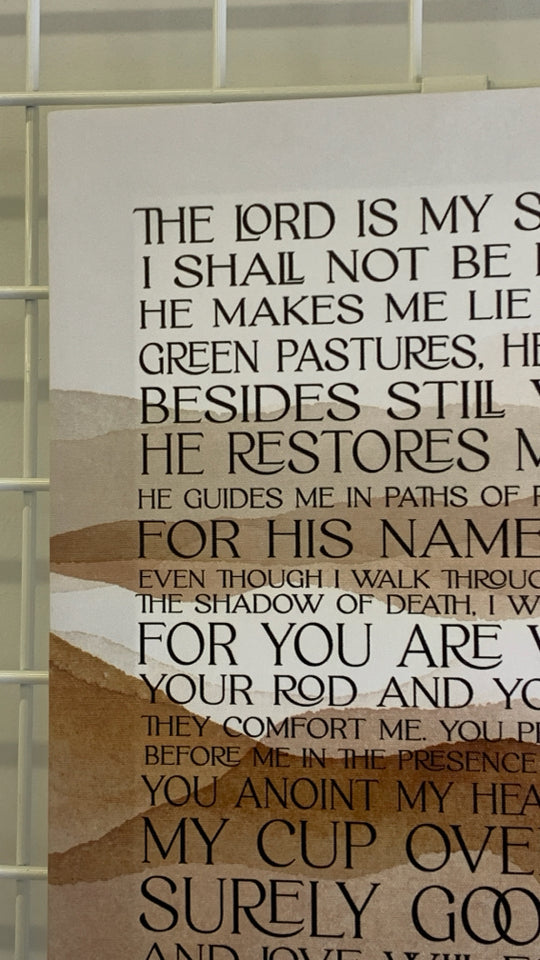 THE LORD IS MY S
I SHALL NOT BE
HE MAKES ME LIE
GREEN PASTURES, HE
BESIDES STILL
HE RESTORES M
HE GUIDES ME IN PATHS OF
FOR HIS NAME
EVEN THOUGH I WALK THROUG
THE SHADOW OF DEATH, I W
FOR YOU ARE
YOUR ROD AND YO
THEY COMFORT ME. YOU PR
BEFORE ME IN THE PRESENCE
YOU ANOINT MY HEA
MY CUP OVE
SURELY GOO
AND LOVE WILL